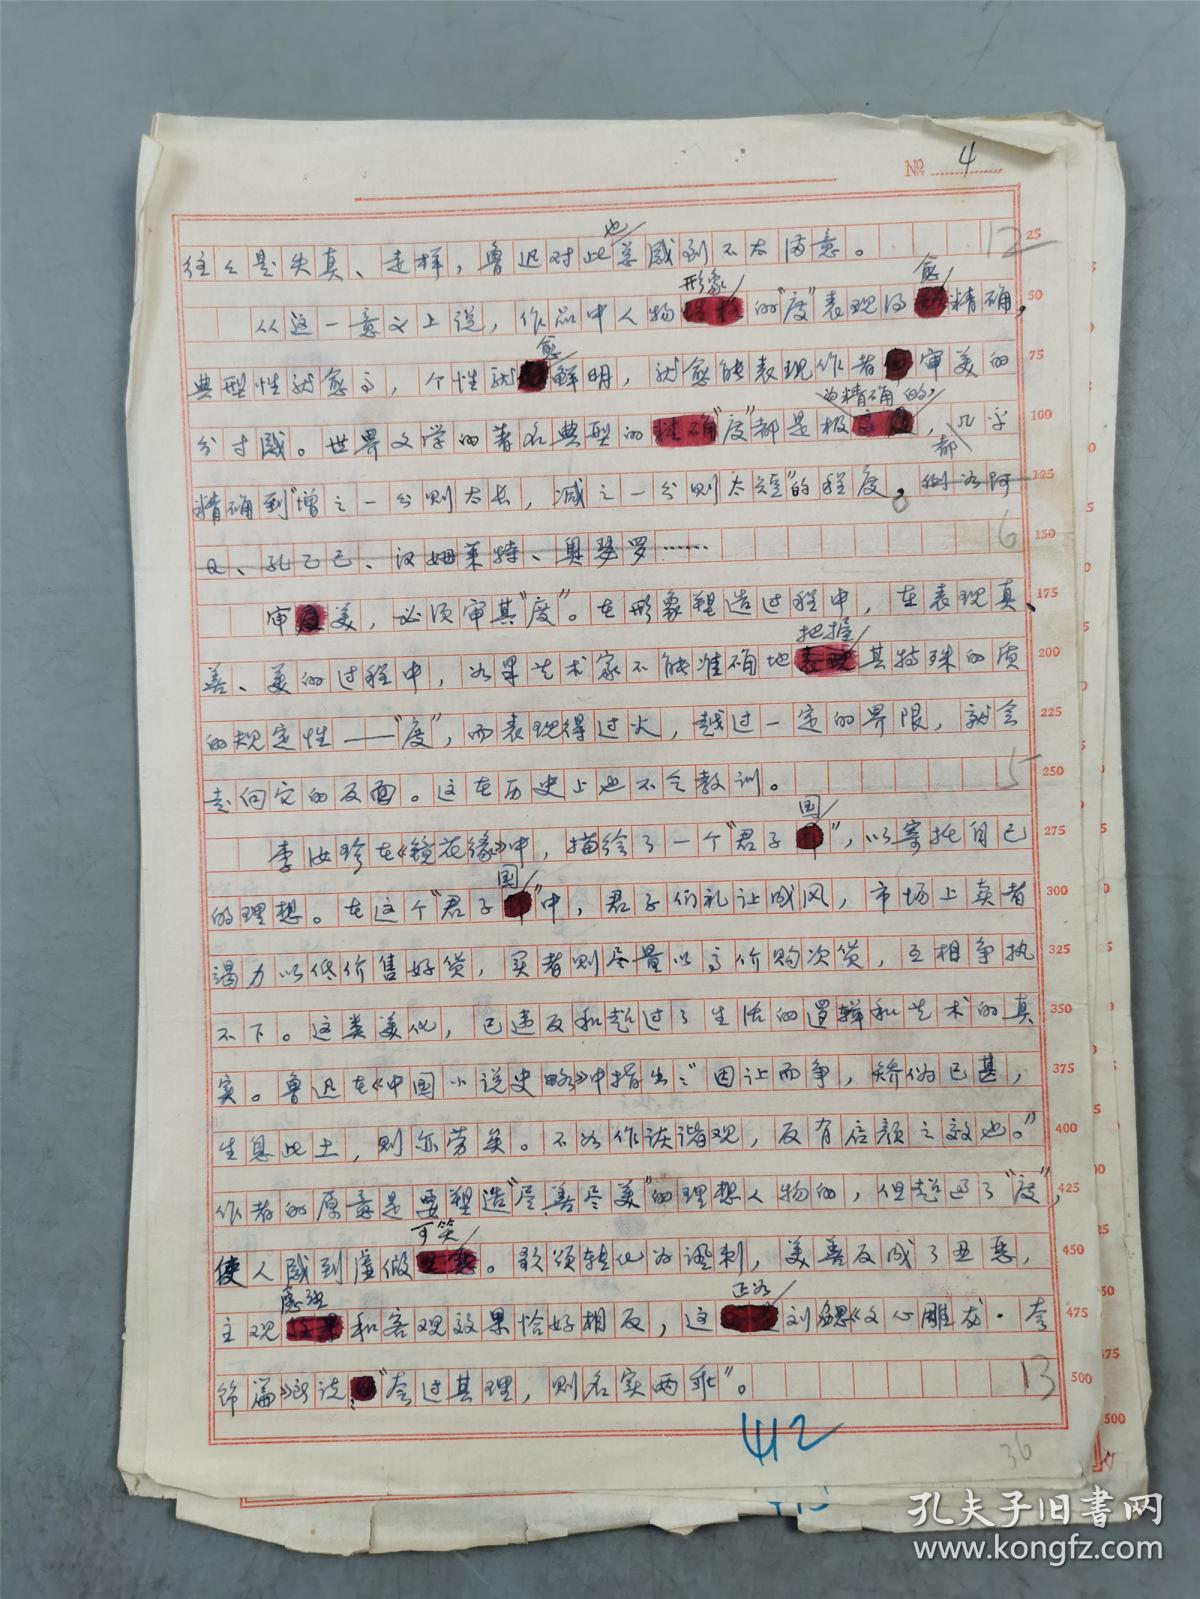 № 4
往々是失真、走样，鲁迅对此也总感到不太满意。 25
12
从这一意义上说，作品中人物形象的“度”表现得愈精确， 50
典型性就愈高，个性就愈鲜明，就愈能表现作者审美的 75
分寸感。世界文学的著名典型的“度”都是极为精确的，几乎 100
都精确到“增之一分则太长，减之一分则太短”的程度。例如阿 125
Q、孔乙己、汉姆莱特、奥瑟罗…… 150
6
审美，必须审其“度”。在形象塑造过程中，在表现真、 175
善、美的过程中，如果艺术家不能准确地把握其特殊的质 200
的规定性——“度”，而表现得过火，越过一定的界限，就会 225
走向它的反面。这在历史上也不乏教训。 250
5
李汝珍在《镜花缘》中，描绘了一个“君子国”，以寄托自己 275
的理想。在这个“君子国”中，君子们礼让成风，市场上卖者 300
竭力以低价售好货，买者则尽量以高价购次货，互相争执 325
不下。这类美化，已违反和超过了生活的逻辑和艺术的真 350
实。鲁迅在《中国小说史略》中指出：“因让而争，矫伪已甚， 375
生息此土，则亦劳矣。不如作诙谐观，反有启颜之效也。” 400
作者的原意是要塑造“尽善尽美”的理想人物的，但超过了“度”， 425
使人感到虚假可笑。歌颂转化为讽刺，美善反成了丑恶， 450
主观意图和客观效果恰好相反，这正如刘勰《文心雕龙·夸 475
饰篇》所说：“夸过其理，则名实两乖”。 500
13
412
36
孔夫子旧书网
www.kongfz.com